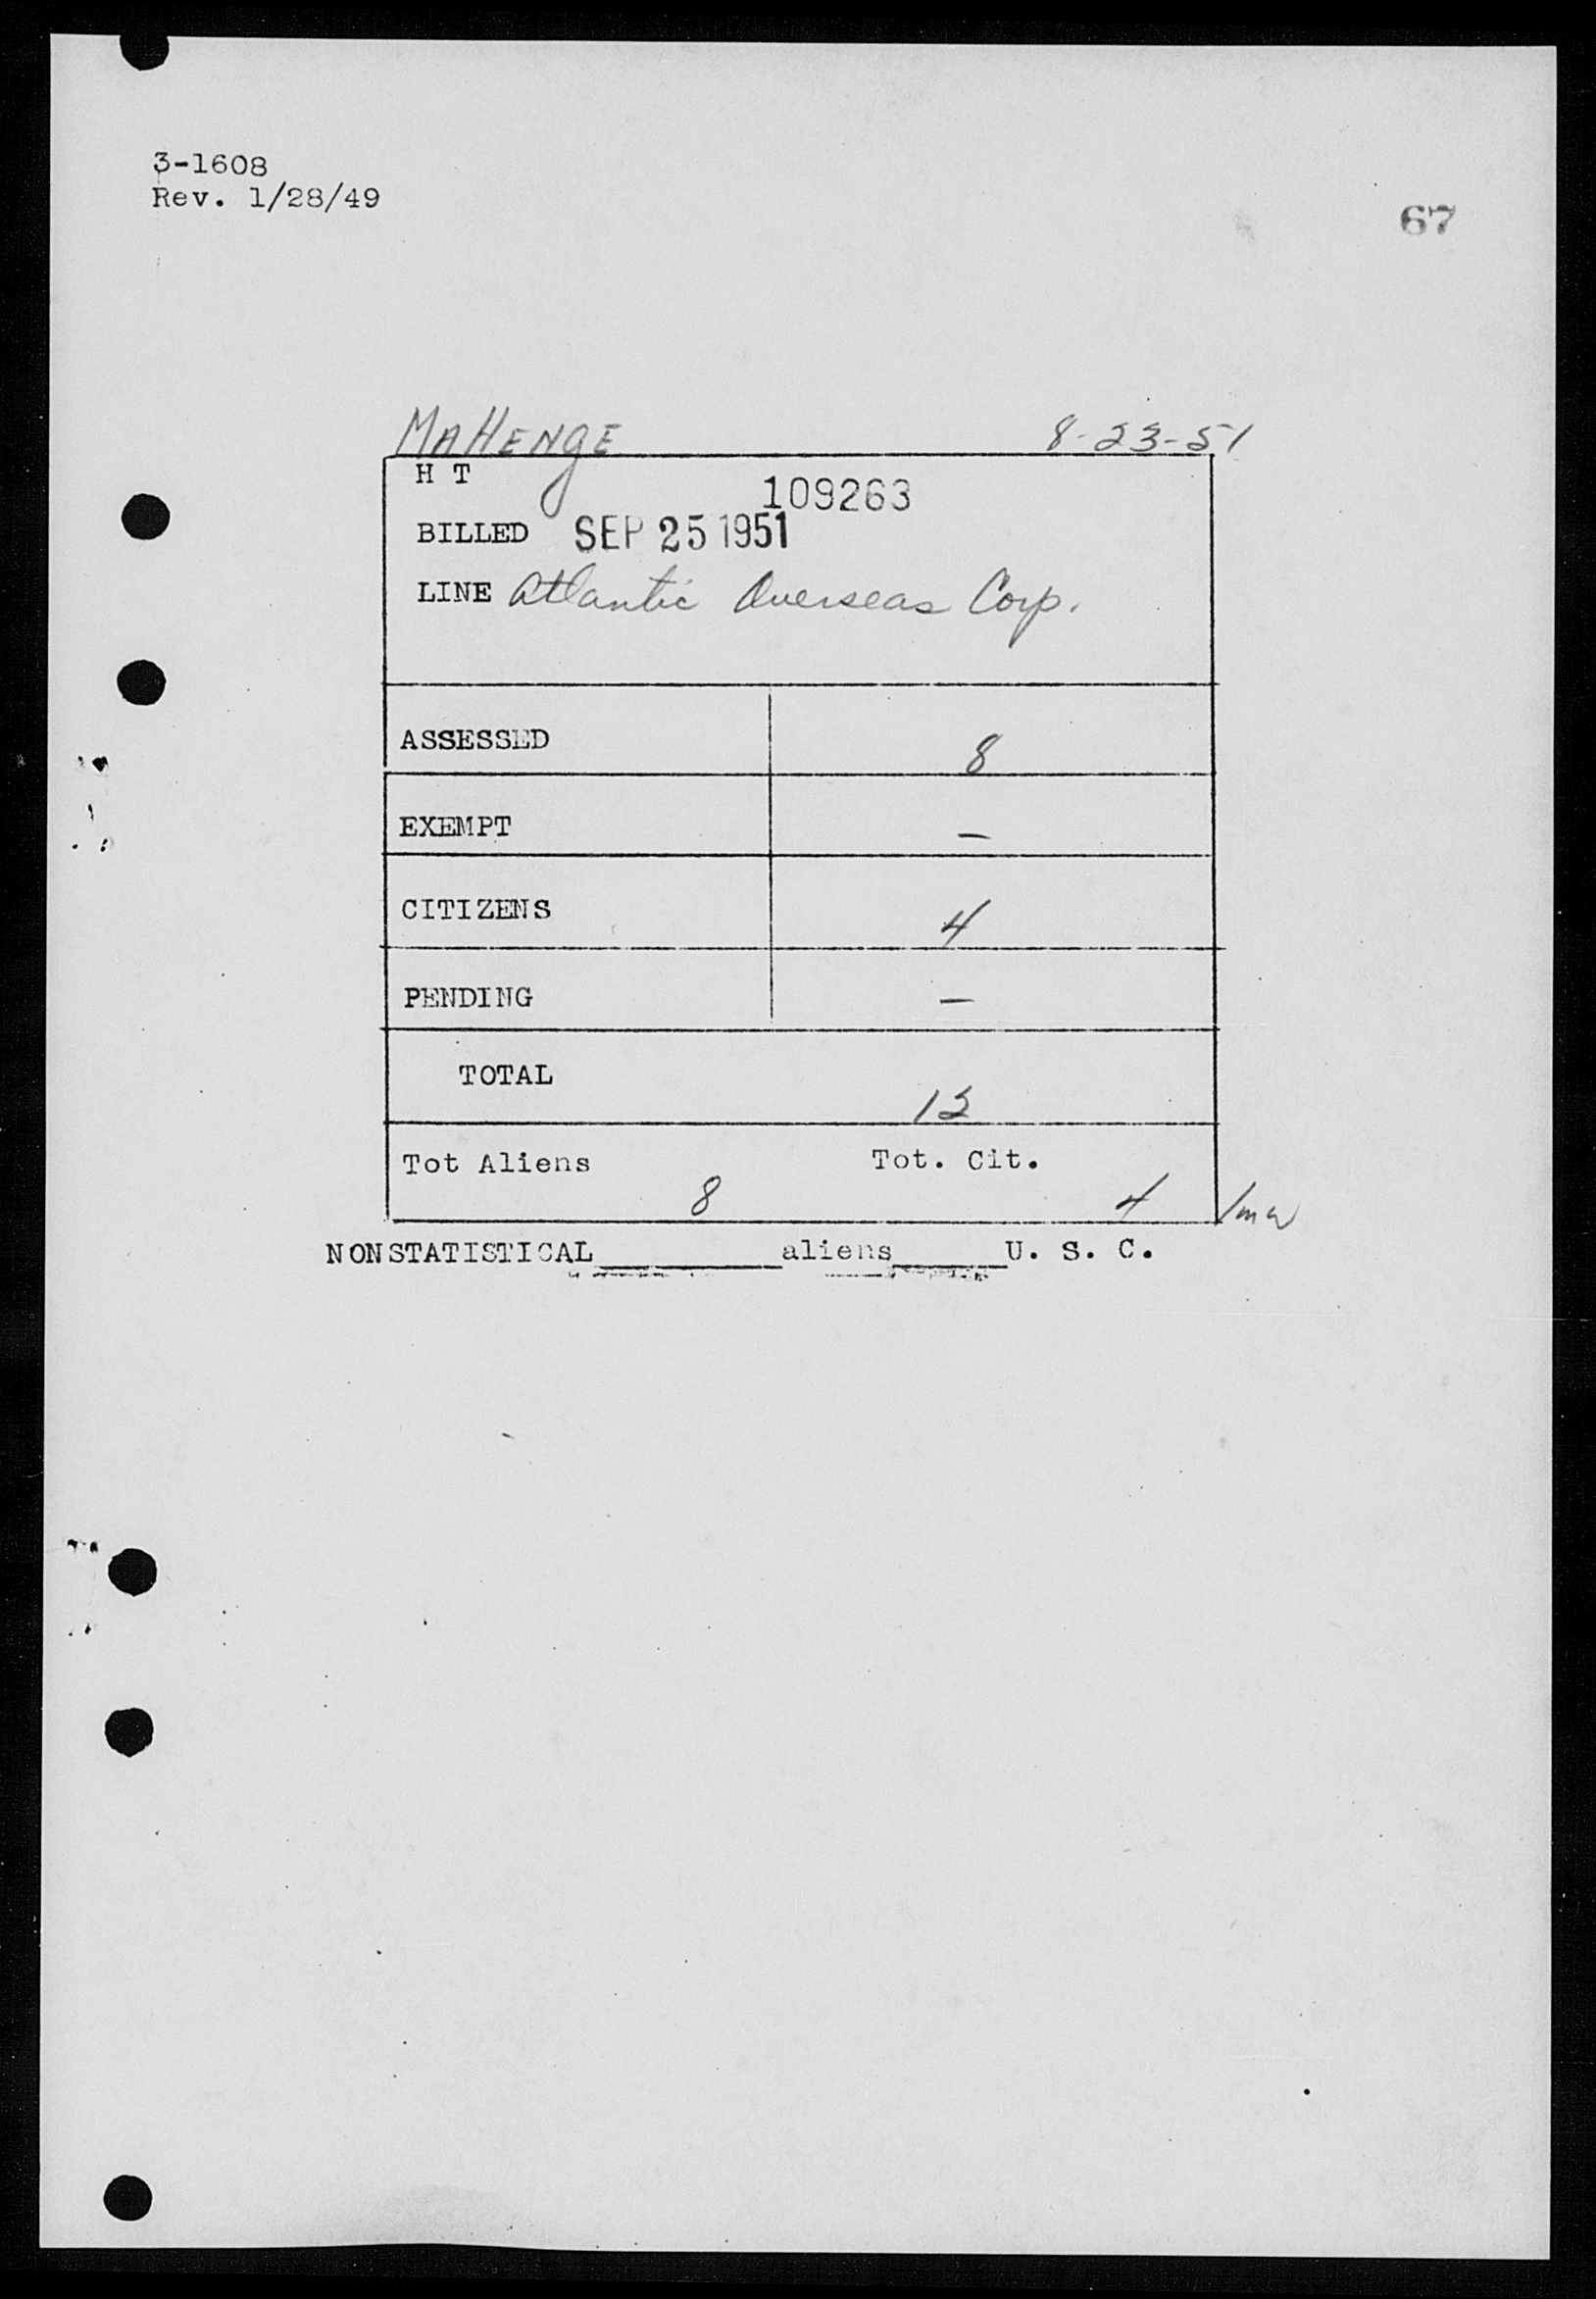 3-1608
Rev. 1/28/49
67
MAHENGE 8-23-51
H T
109263
BILLED SEP 25 1951
LINE Atlantic Overseas Corp.
ASSESSED 8
EXEMPT —
CITIZENS 4
PENDING —
TOTAL 12
Tot Aliens Tot. Cit.
8 4
NONSTATISTICAL_____aliens_____U. S. C.